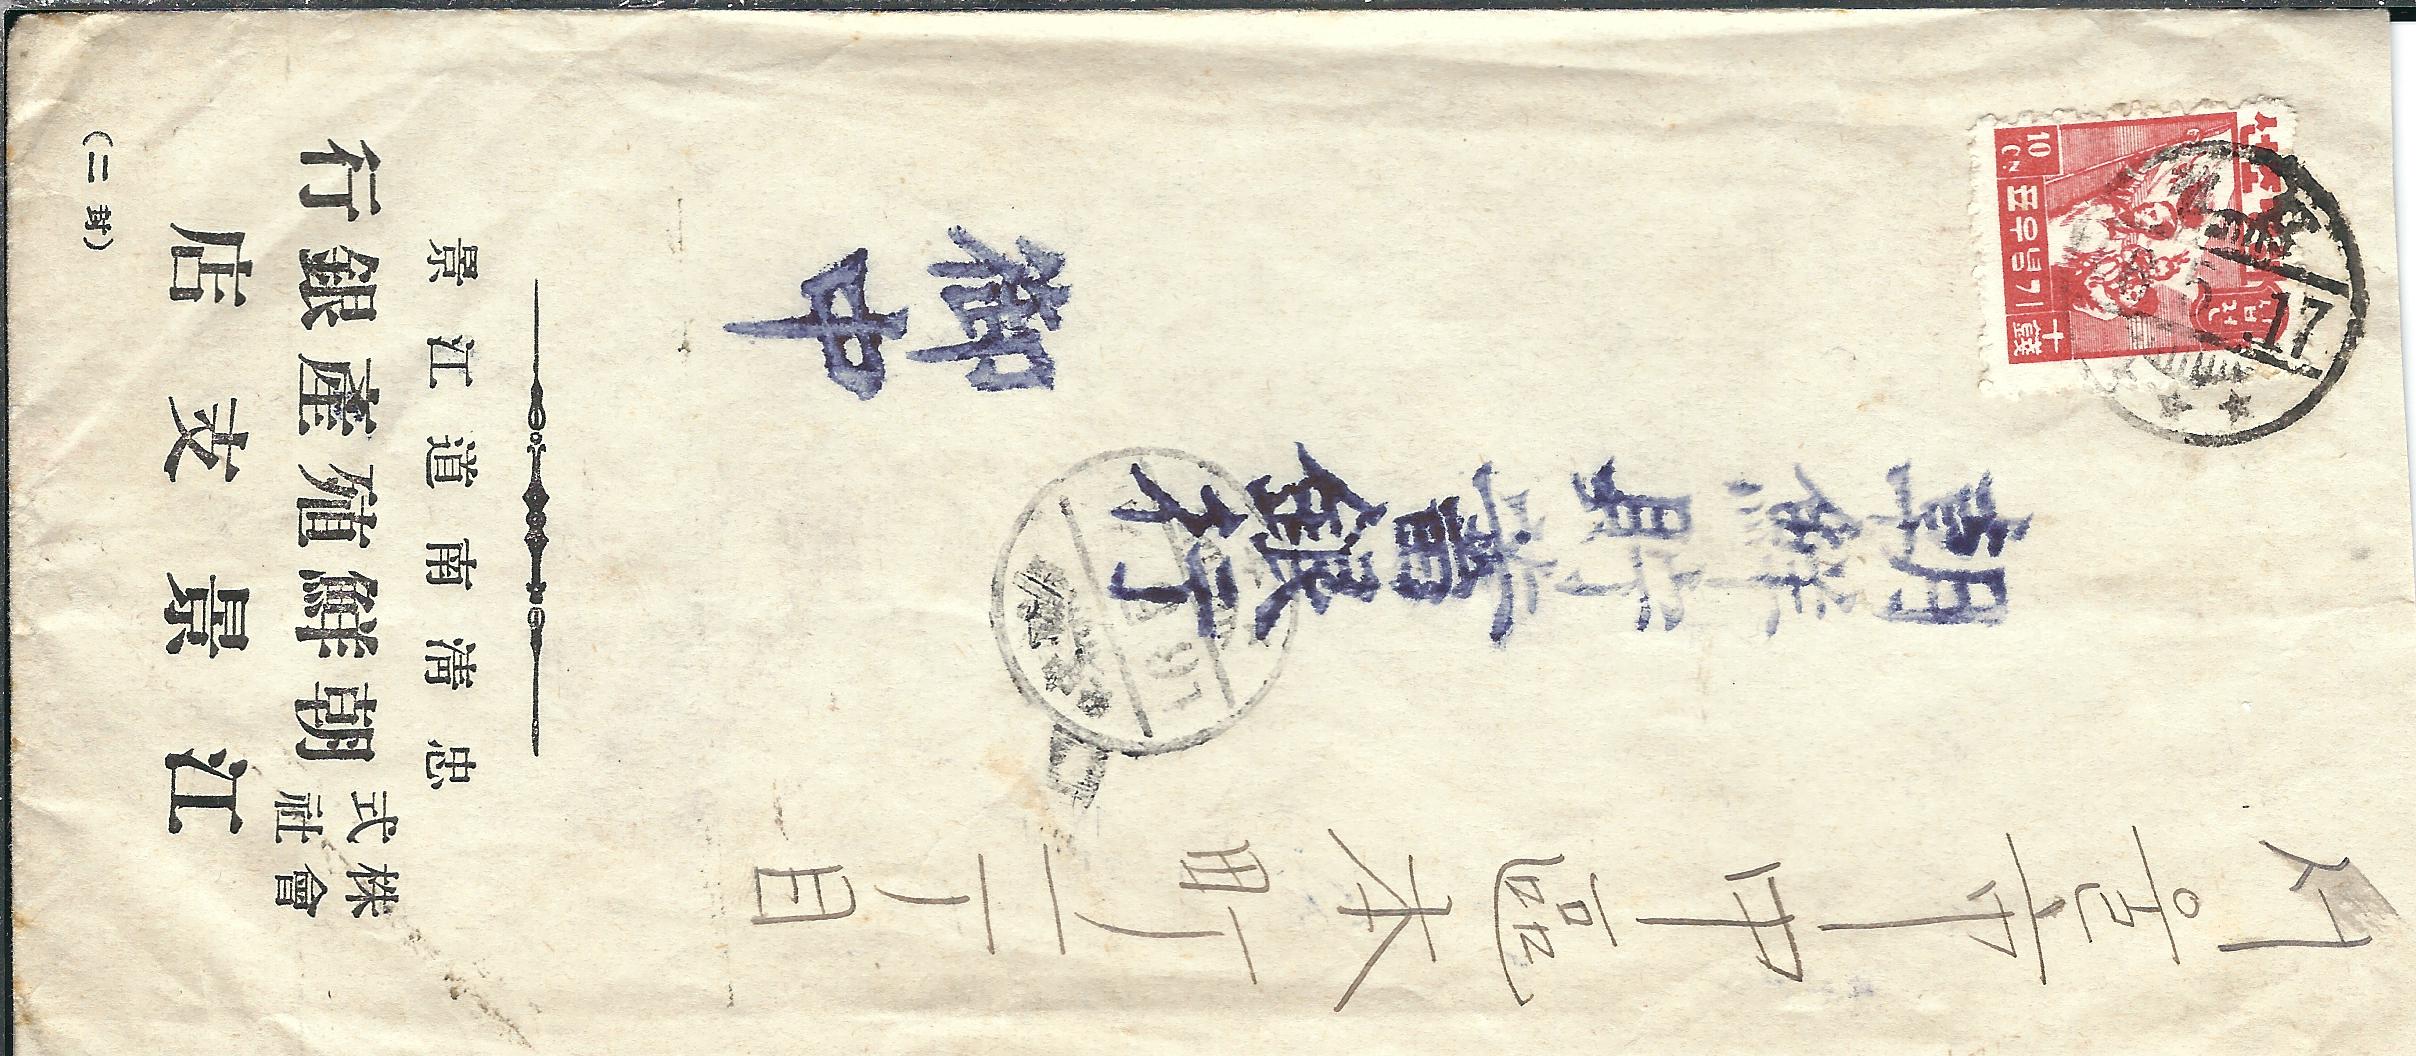 서울市中區本町二丁目
朝鮮貯蓄銀行
御中
10 CN
표우념기
十錢
17
忠淸南道江景
株式會社 朝鮮殖產銀行
江景支店
(封二)